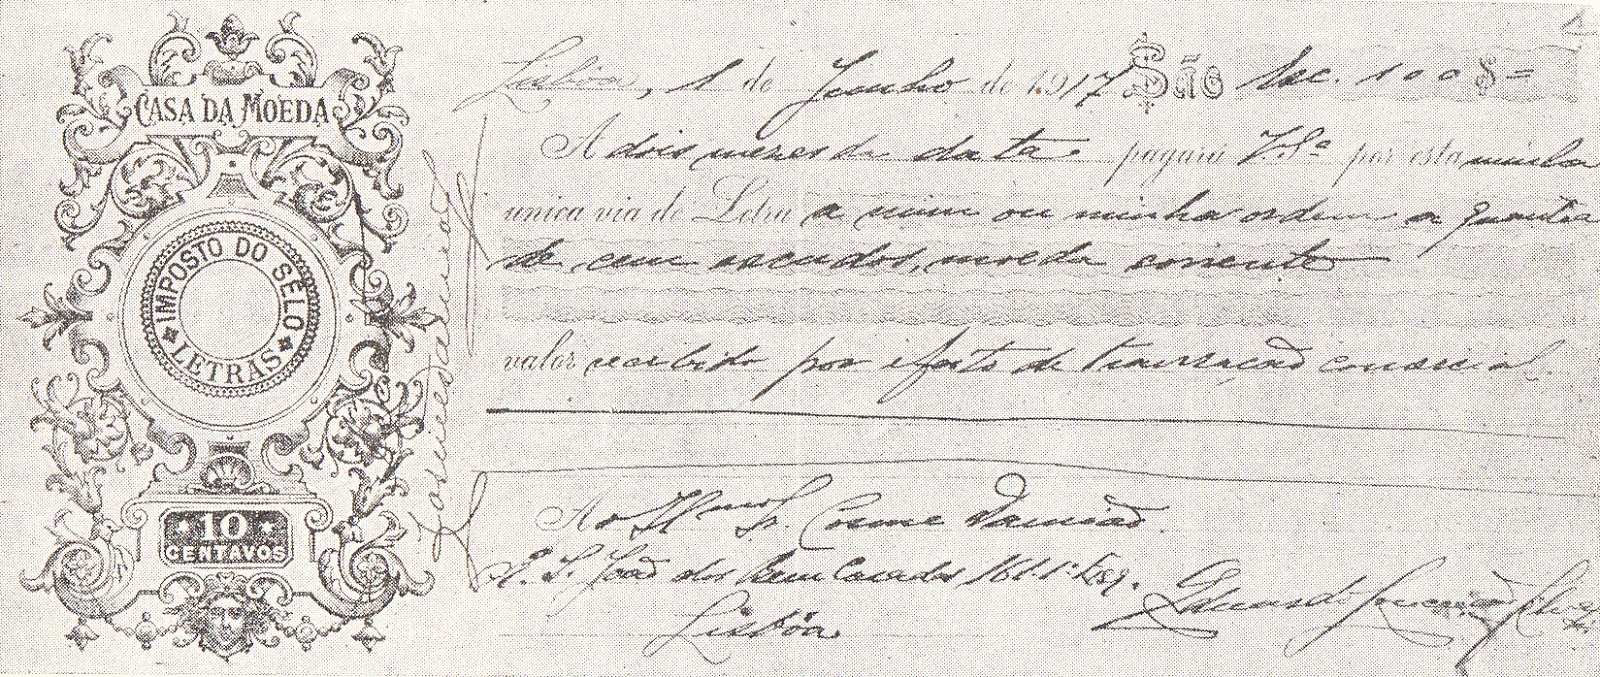 CASA DA MOEDA
IMPOSTO DO SELO
LETRAS
10
CENTAVOS
Lisbôa, 1 de Junho de 1917 São Esc. 100$=
A dois mezes da data pagará V. Sª por esta minha
unica via de Letra a mim ou minha ordem a quantia
de cem escudos, moeda corrente
valor recebido por efeito de transação comercial.
Ao Illmo Sr. Cosme Damião
R. S. João dos Bem Casados 161-1º Esq.
Lisbôa
Eduardo